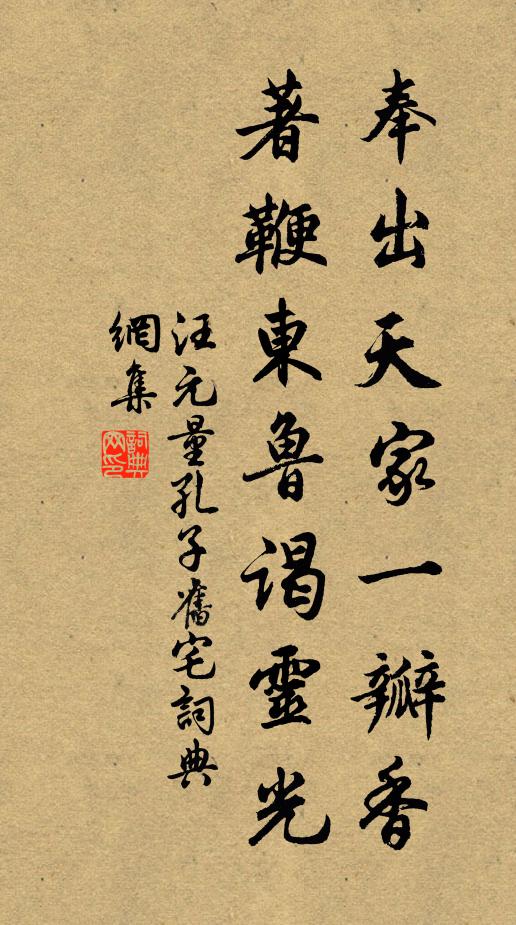 奉出天家一瓣香
著鞭東魯謁靈光
汪元量孔子舊宅詞典
網集
詞典網印